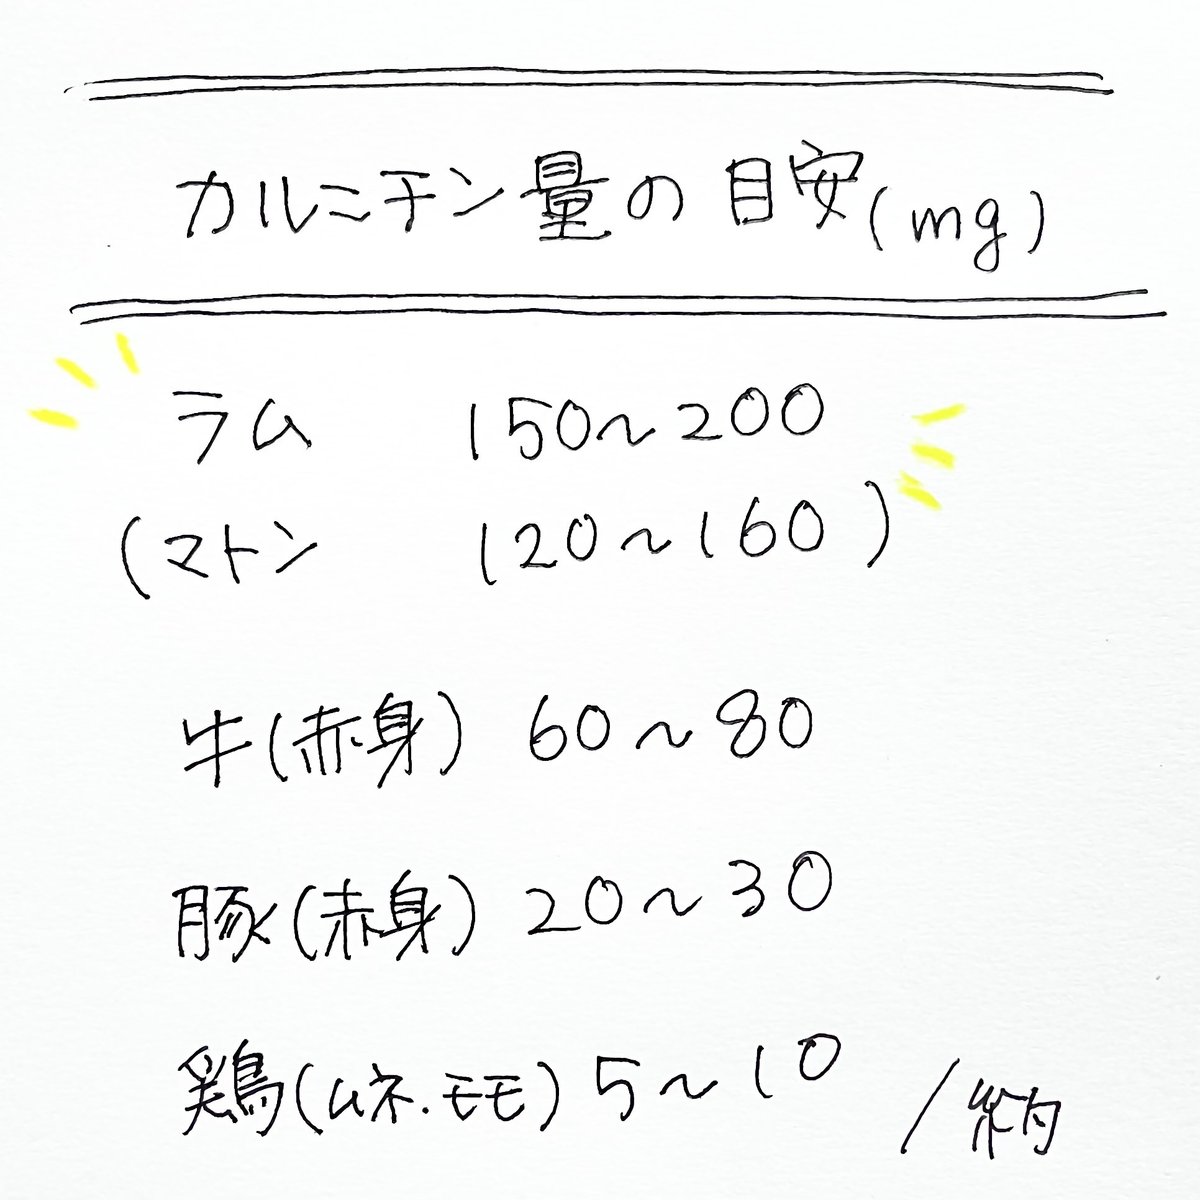 カルニチン量の目安(mg)
ラム 150〜200
(マトン 120〜160)
牛(赤身) 60〜80
豚(赤身) 20〜30
鶏(ムネ.モモ) 5〜10
/納